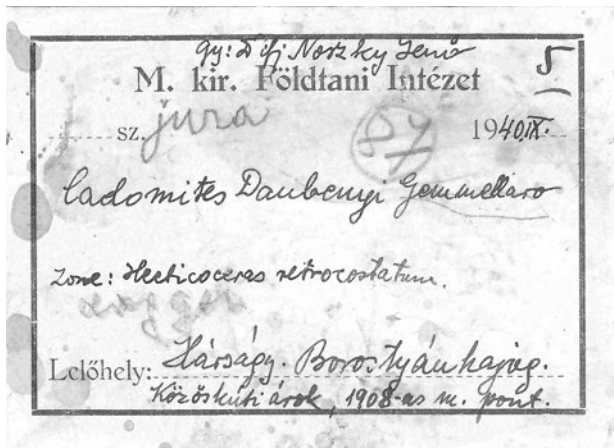 gy: D ifj Noszky Jenő 5
M. kir. Földtani Intézet
sz. jura 1940.IX.
Cadomites Daubenyi Gemmellaro
Zone: Hecticoceras retrocostatum.
Lelőhely: Hárságy. Borostyánhajag.
Közöskúti árok, 1908-as m. pont.